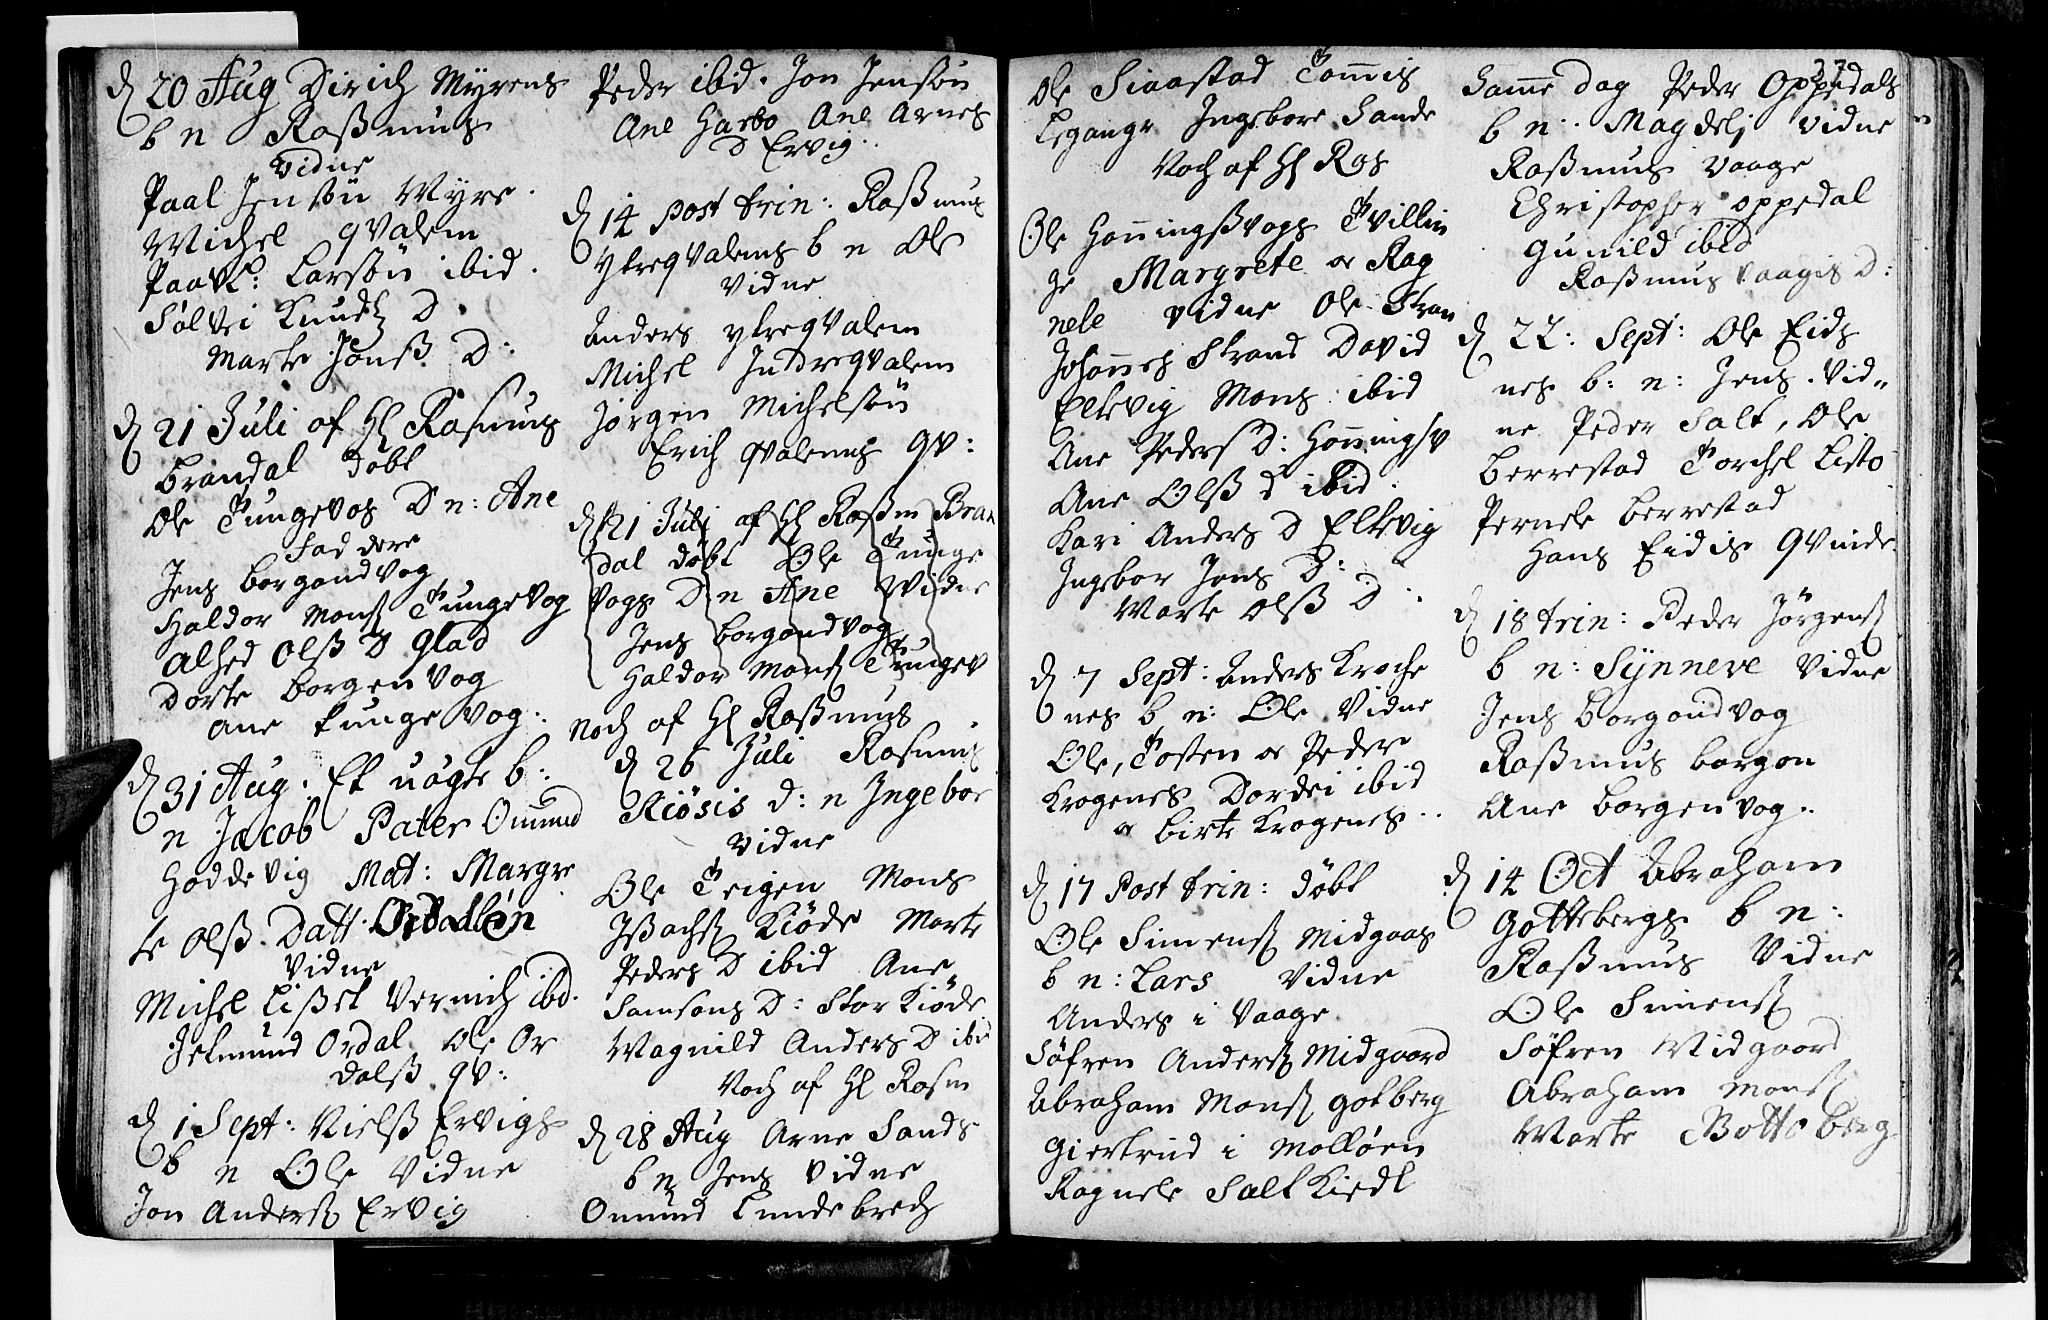 D 20 Aug Dirich Myrens
b n Rassmus
Vidne
Paal Jensøn Myre.
Michel qvalem
Paavl: Larsøn ibid.
Sølvi Knudtz D
Marte Jonss. D:
D 21 Juli af Hl Rasmus
Brandal døbt
Ole Tungevos D n: Ane
Faddere
Jens borgandvog
Haldor Mons Tungevog
Alhed Olss D Glad
Dorte borgenvog
Ane tungevog:
D 31 Aug. Et uægte b:
n Jacob Pater Omund
Haddevig Mat: Margre
te Olss. Datt. Ordalen
Vidne
Michel Lisset ibd.
Jetmund Ordal. Ole Or
dalss. qv:
D 1 Sept: Nielss Ervigs
b n Ole Vidne
Jon Anders Ervig
Peder ibid. Jon Jensøn
Ane Garbo Ane Arnes
D Ervig.
D 14 Post trin: Rassmus
ytreqvalems b n Ole
Vidne
Anders ytreqvalem
Michel Indreqvalem
Jørgen Michelsøn
Erich qvalems qv:
D 21 Juli af Hl Rassm Bran
dal døbt Ole Tunge
vogs D: n Ane Vidne
Jens borgandvog
Haldor Mons Tungev
Noch af Hl Rassmus
D 26 Juli Rasmus
Kiøsis d: n Ingebor
Vidne
Ole Teigen Mons
Issachs Kiøde Marte
Peders D ibid Ane
Samsons D: Stor Kiøde
Magnild Anders D ibid
Noch af Hl Rasm
D 28 Aug Arne Sands
b n Jens Vidne
Omund Lundebrech
37
Ole Siaastad Tomis
Legangr Ingebore Sande
Noch af Hl Ros
Ole Honningssvogs Tvillin
ge Margrete oc Rag
nele Vidne Ole Stran
Johannes Strand David
Elkevig Mons ibid
Ane Peders D: Honningsv
Ane Olss d ibid.
Kari Anders D Elkevig
Ingebor Jens D:
Marte Olss D:
D 7 Sept: Anders Kroche
nes b n: Ole Vidne
Ole, Tosten oc Peder
Krogenes Dordei ibid
oc birte Krogenes..
D 17 Post trin: døbt
Ole Simens Midgaas
b n: Lars Vidne
Anders i Vaage
Søfren Anders Midgaard
Abraham Mons gotberg
Giertrud i Molløen
Ragnele Saltkiedl
Samme dag Peder Oppedals
b n: Magdeli Vidne
Rassmus Vaage
Christopher oppedal
Gunild ibid
Rassmus Vaagis D:
D 22: Sept: Ole Eids
nes b: n: Jens. Vid,,
ne Peder Salt, Ole
Berrestad Torchel Listo
Pernele berrestad
Hans Eidis qvinde.
D 18 trin: Peder Jørgens
b n: Synneve Vidne
Jens Borgandvog
Rassmus borgon
Ane borgenvog.
D 14 Oct Abraham
Gottebergs b n:
Rassmus Vidne
Ole Simens
Søfren Midgaard
Abraham Mons
Marte Gotteberg